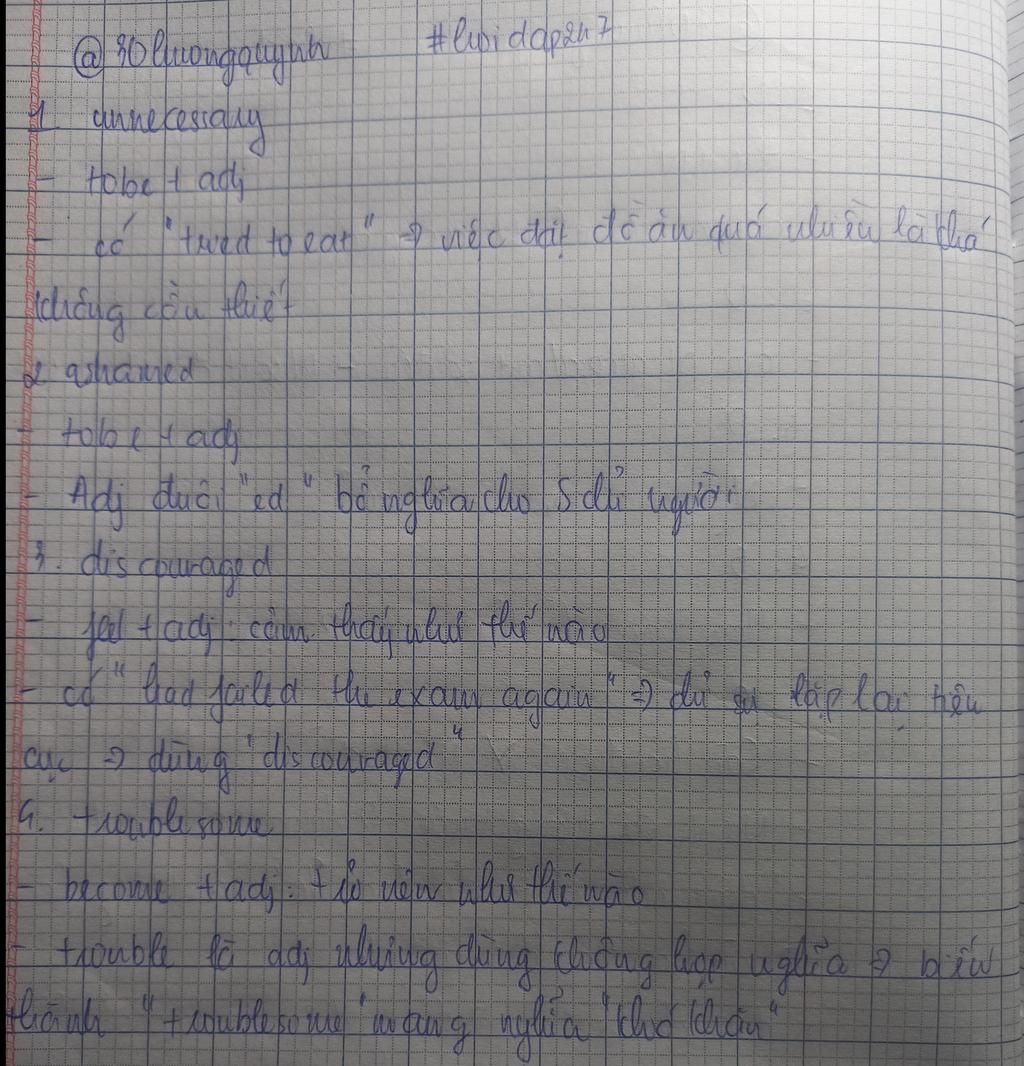 @30luongquynh #loidap247
1 unnecessary
- tobe + adj
- có "tired to eat" => việc đặt đồ ăn quá nhiều là khá
không cần thiết
2 ashamed
- tobe + adj
- Adj đuôi "ed" bổ nghĩa cho S chỉ người
3. discouraged
- feel + adj: cảm thấy như thế nào
- có "had failed the exam again" => chỉ sự lặp lại tiêu
cực => dùng "discouraged"
4. troublesome
- become + adj: trở nên như thế nào
- trouble là adj nhưng dùng không hợp nghĩa => biến
thành "troublesome" mang nghĩa "khó khăn"